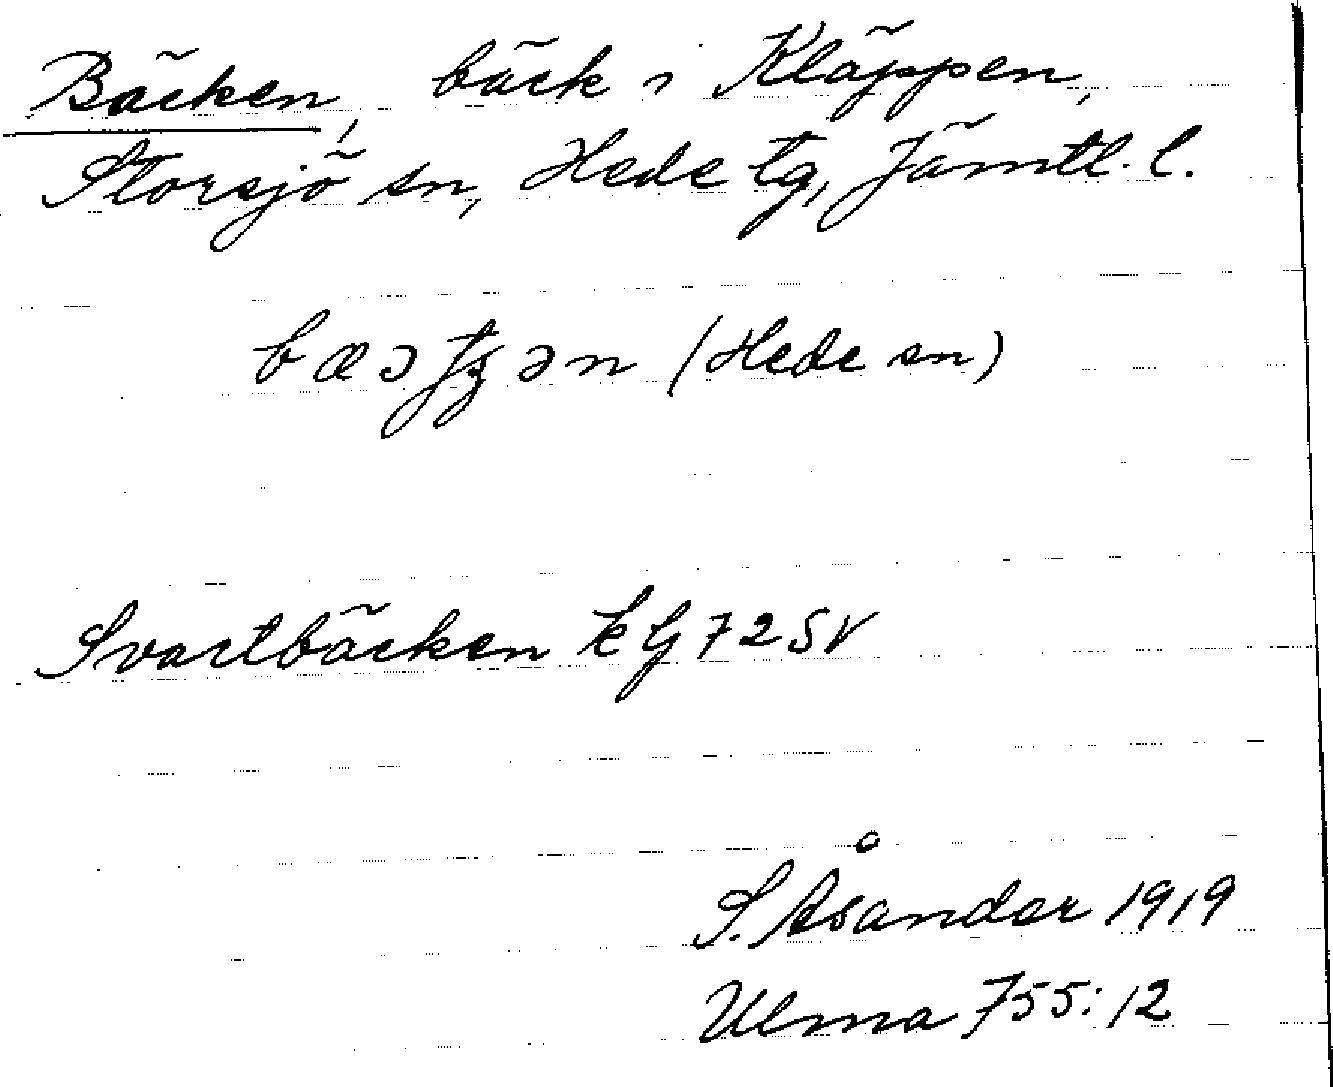 Bäcken, bäck i Kläppen,
Storsjö sn, Hede tg, Jämtl. l.
(Hede sn)
Svartbäcken kG72SV
S. Åsander 1919
Ulma 755:12